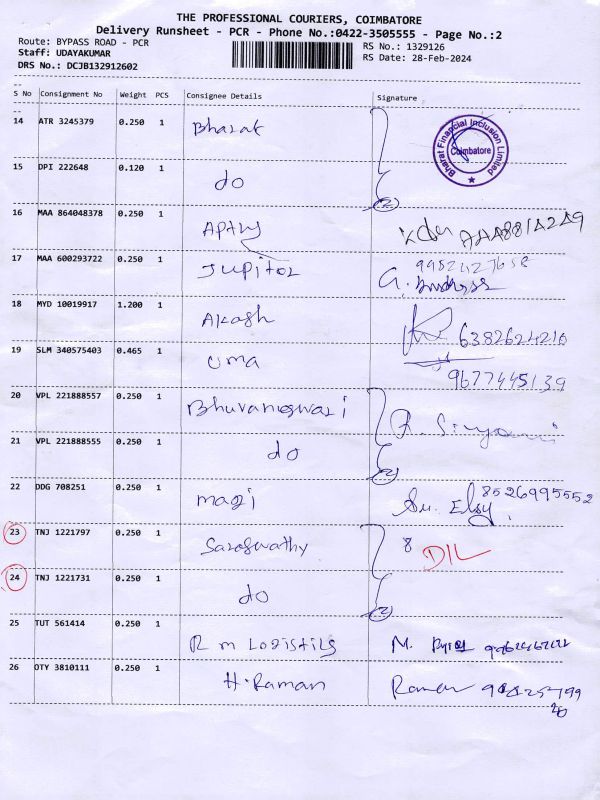 THE PROFESSIONAL COURIERS, COIMBATORE
Delivery Runsheet - PCR - Phone No.:0422-3505555 - Page No.:2
Route: BYPASS ROAD - PCR
RS No.: 1329126
Staff: UDAYAKUMAR
RS Date: 28-Feb-2024
DRS No.: DCJB132912602
S No Consignment No Weight PCS Consignee Details Signature
14 ATR 3245379 0.250 1 Bharat
Bharat Financial Inclusion Limited
Coimbatore
15 DPI 222648 0.120 1 do (2)
16 MAA 864048378 0.250 1
17 MAA 600293722 0.250 1 Jupitor
18 MYD 10019917 1.200 1 Akash 6382624210
19 SLM 340575403 0.465 1 uma 9677445139
20 VPL 221888557 0.250 1 Bhuvaneswari
21 VPL 221888555 0.250 1 do (2)
22 DDG 708251 0.250 1 magi 8526995552
23 TNJ 1221797 0.250 1 Saraswathy 8 DIL
24 TNJ 1221731 0.250 1 do (2)
25 TUT 561414 0.250 1 R m Logistils M.
26 OTY 3810111 0.250 1 H. Raman Raman